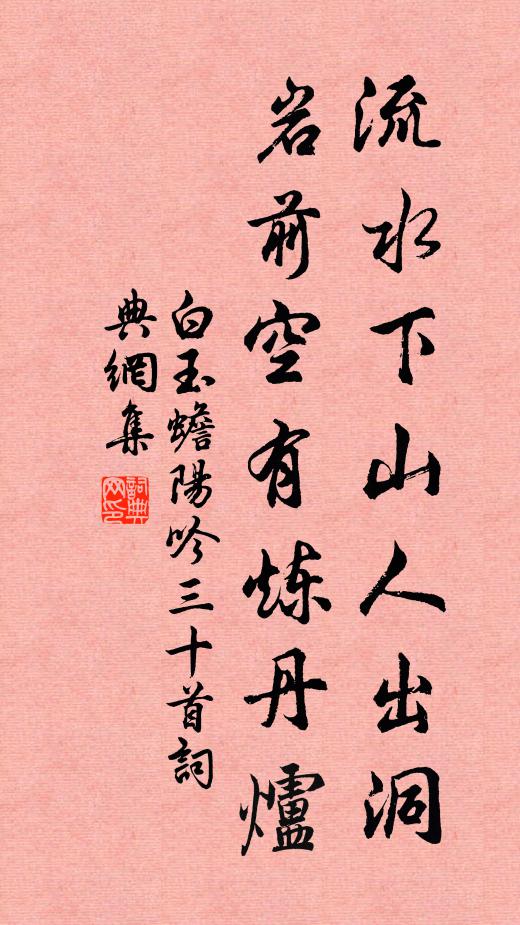 流水下山人出洞
岩前空有炼丹爐
白玉蟾陽吟三十首詞
典網集
詞典網印